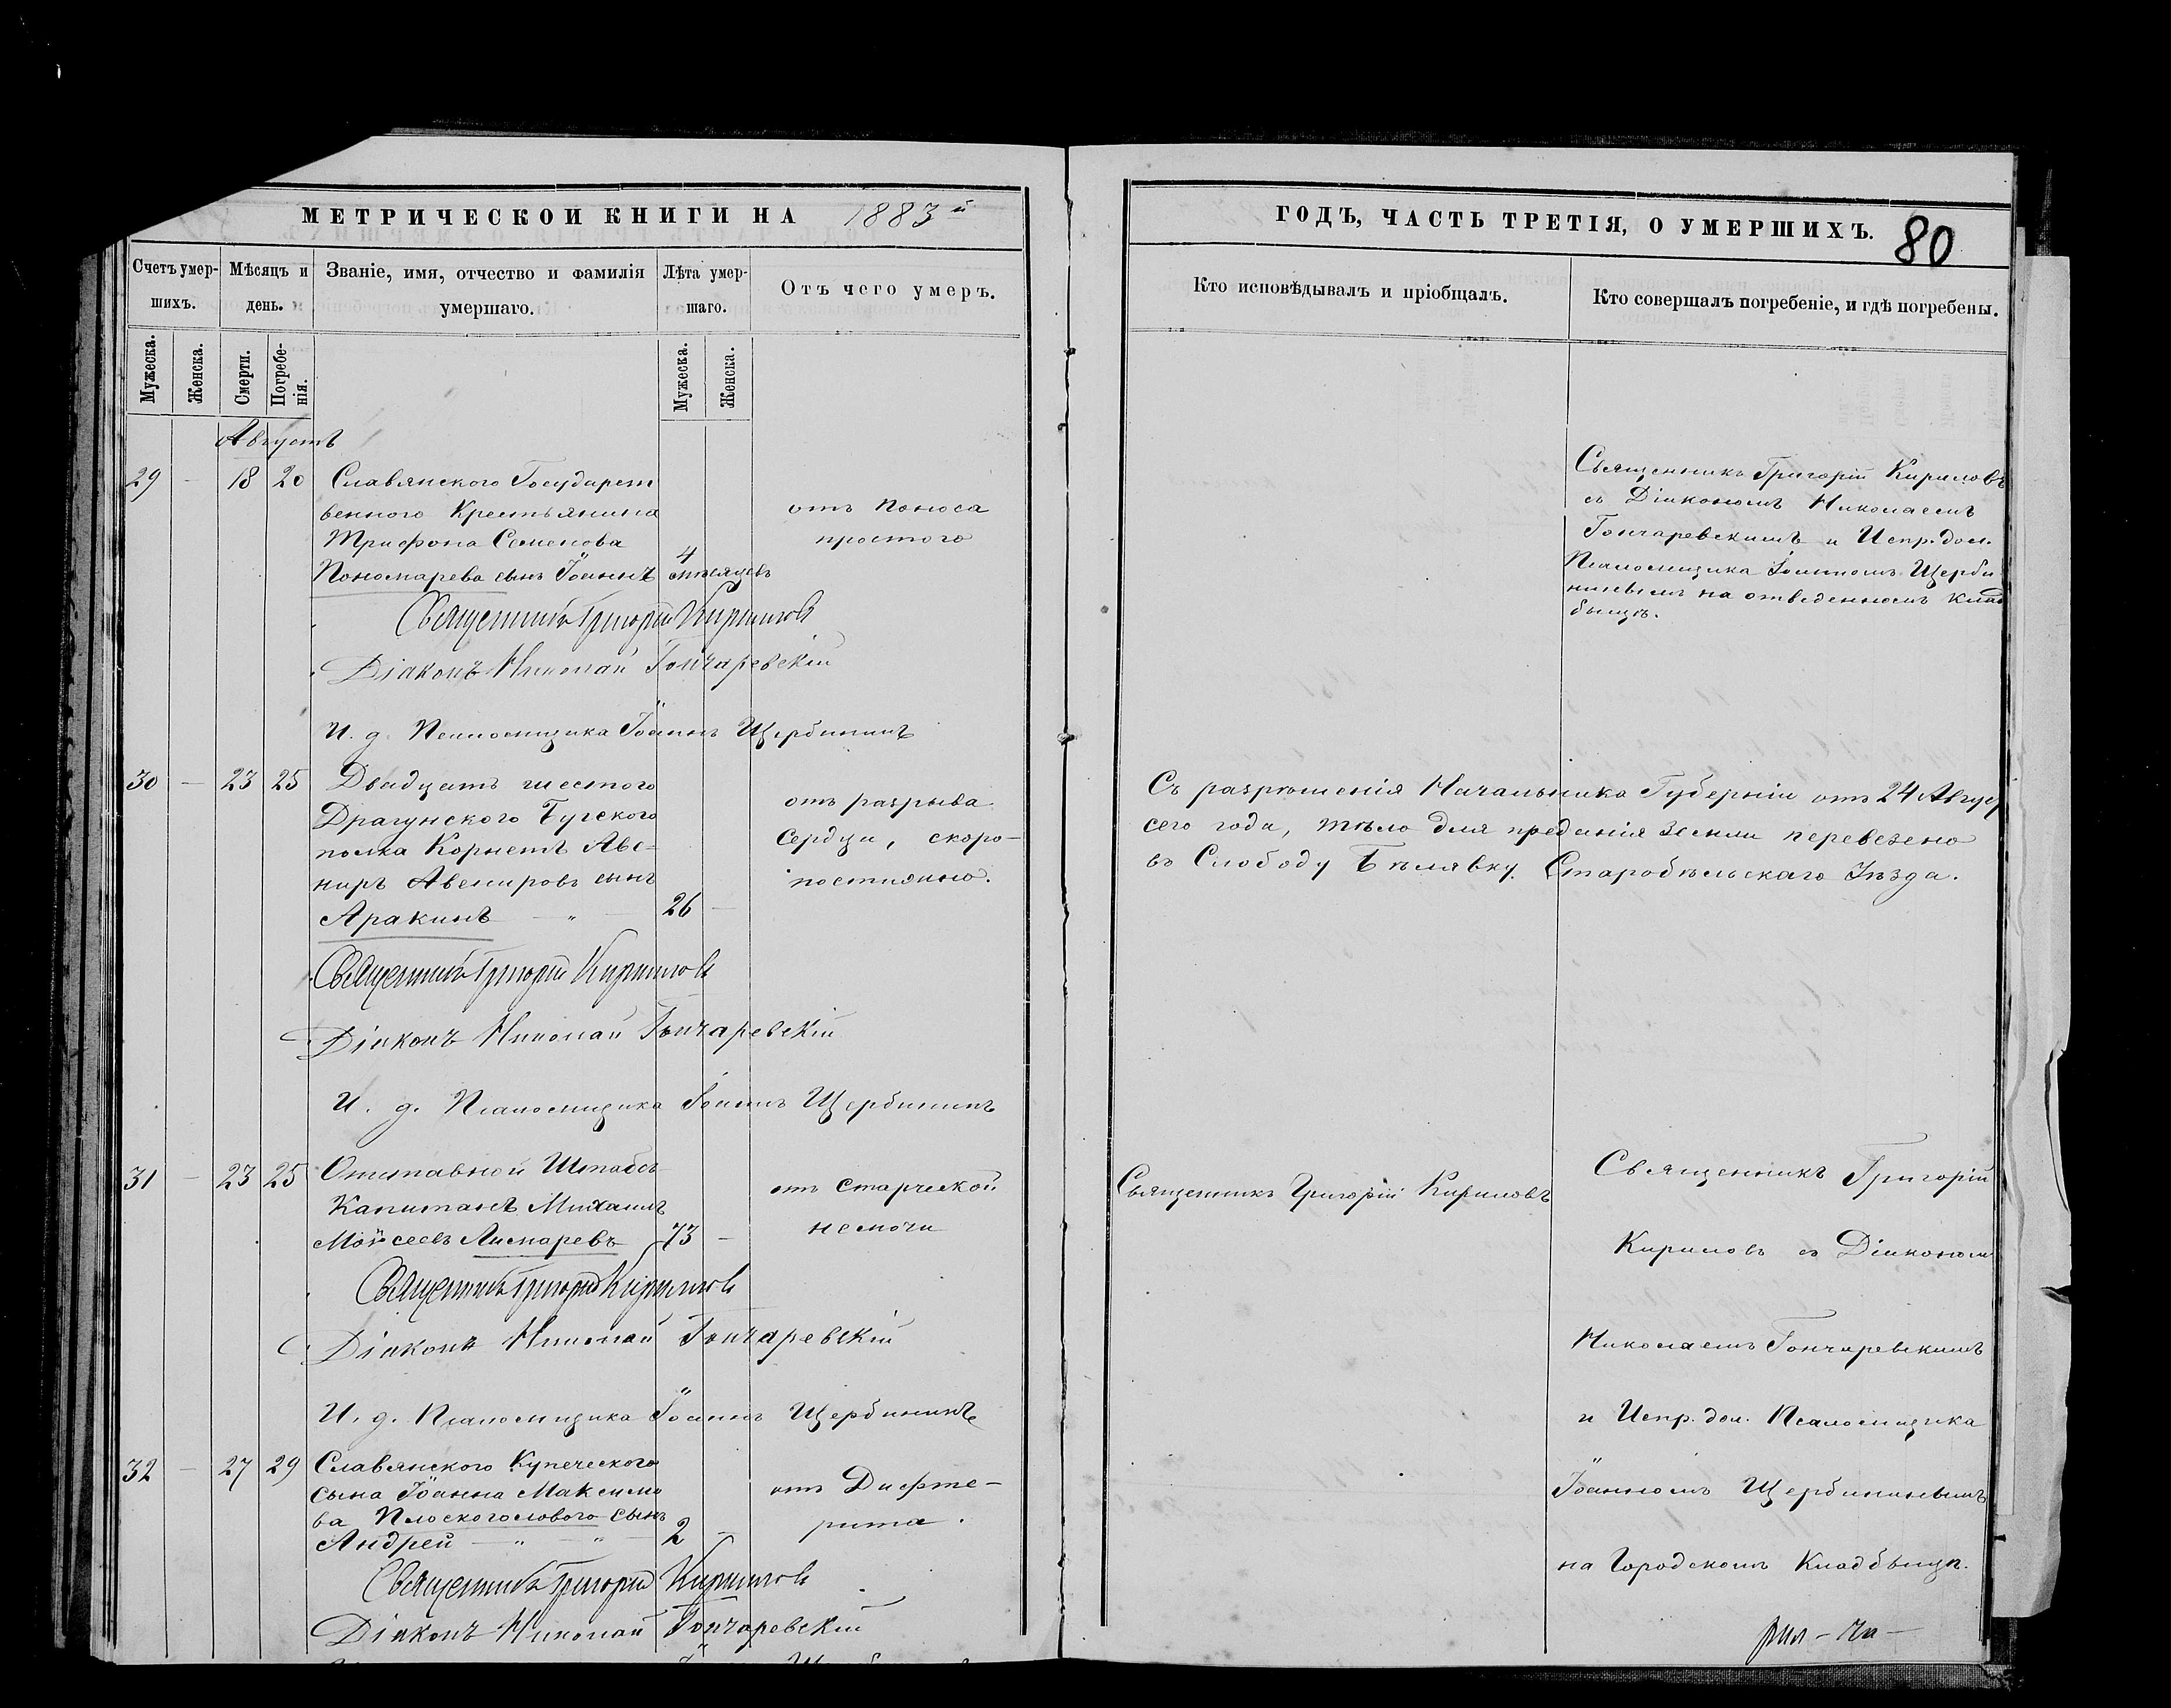 МЕТРИЧЕСКОЙ КНИГИ НА 1883й
Счетъ умер-
шихъ.
Мѣсяцъ и
день.
Званіе, имя, отчество и фамилія
умершаго.
Лѣта умер-
шаго.
Отъ чего умеръ.
Мужеска.
Женска.
Смерти.
Погребе-
нія.
Мужеска.
Женска.
Августъ
29 - 18 20 Славянского Государст
венного Крестьянина
Трифона Семенова
Пономарева сынъ Іоаннъ
4
мѣсяцевъ
отъ поноса
простого
Священникъ Григорій Кириловъ
Діаконъ Николай Гончаревскій
И. д. Псаломщика Іоаннъ Щербининъ
30 - 23 25 Двадцать шестого
Драгунского Бугского
полка Корнетъ Аве-
ниръ Авенировъ сынъ
Аракинъ - " - 26 -
отъ разрыва
сердца, скоро-
постижно.
Священникъ Григорій Кириловъ
Діаконъ Николай Гончаревскій
И. д. Псаломщика Іоаннъ Щербининъ
31 - 23 25 Отставной Штабсъ
Капитанъ Михаилъ
Моѵсеевъ Лисаревъ 73 -
отъ старческой
немочи
Священникъ Григорій Кириловъ
Діаконъ Николай Гончаревскій
И. д. Псаломщика Іоаннъ Щербининъ
32 - 27 29 Славянского Купеческого
сына Іоанна Максимо
ва Плоскоголового сынъ
Андрей - " - " - 2 -
отъ Дифте-
рита.
Священникъ Григорій Кириловъ
Діаконъ Николай Гончаревскій
ГОДЪ, ЧАСТЬ ТРЕТІЯ, О УМЕРШИХЪ. 80
Кто исповѣдывалъ и пріобщалъ.
Кто совершалъ погребеніе, и гдѣ погребены.
Священникъ Григорій Кириловъ
съ Діакономъ Николаемъ
Гончаревскимъ и Испр. дол.
Псаломщика Іоанномъ Щерби
нинымъ на отведенномъ клад
бищѣ.
Съ разрѣшенія Начальника Губерніи отъ 24 Август
сего года, тѣло для преданія земли перевезено
въ Слободу Бѣлявку Старобѣльскаго Уѣзда.
Священникъ Григорій Кириловъ
Священникъ Григорій
Кириловъ съ Діакономъ
Николаемъ Гончаревскимъ
и Испр. дол. Псаломщика
Іоанномъ Щербининымъ
на Городскомъ Кладбищѣ.